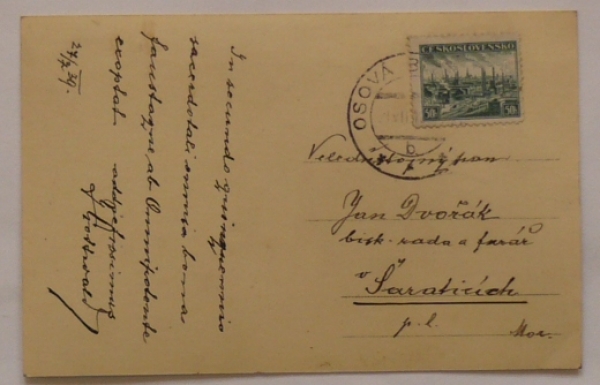 In secundo quinquennio
sacerdotali omnia bona
faustaque ab Omnipotente
exoptat addictissimus
27/7 39.
ČESKOSLOVENSKO
50h 50h
OSOVÁ
b
Veledůstojný pan
Jan Dvořák
bisk. rada a farář
v Šaraticích
p. l. Mor.